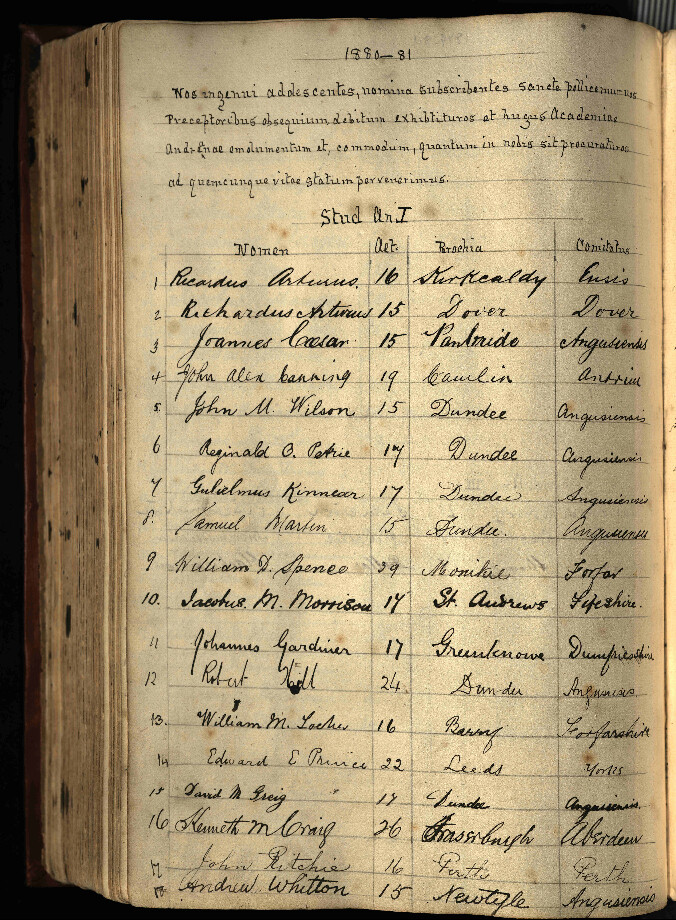 1880—81
Nos ingenui addescentes, nomina subscribentes sancte pollicemur nos
Preceptoribus obsequium debitum exhibtituros et hugus Academiae
Andrenae emolumentum et, commodum, quantum in nobis sit procuraturos
ad quemcunque vitae statum pervenerimus.
Stud An. I
Nomen Aet. Comitatus
1 Ricardus Arturus. 16 Kirkcaldy Ensis
2 Richardus Arturus 15 Dover Dover
3 Joannes Caesar 15 Panbride Angusiensis
4 John Alex Canning 19 Antrim
5 John M. Wilson 15 Dundee Angusiensis
6 Reginald O. Petrie 17 Dundee Angusiensis
7 Gulielmus Kinnear 17 Dundee Angusiensis
8. Samuel Martin 15 Dundee. Angusiensis
9 William D. Spence 29 Monikie Forfar
10. Jacobus. M. Morrison 17 St. Andrews Fifeshire.
11 Johannes Gardiner 17 Greenknowe Dumfriesshire
12 Robert Hill 24. Dundee Angusiensis
13. William M. 16 Barry Forfarshire
14 Edward E Prince 22 Leeds Yorks
15 David M Greig 17 Dundee Angusiensis
16 Kenneth M Craig 26 Fraserburgh Aberdeen
17 John Ritchie 16 Perth Perth
18 Andrew Whitton 15 Newtyle Angusiensis